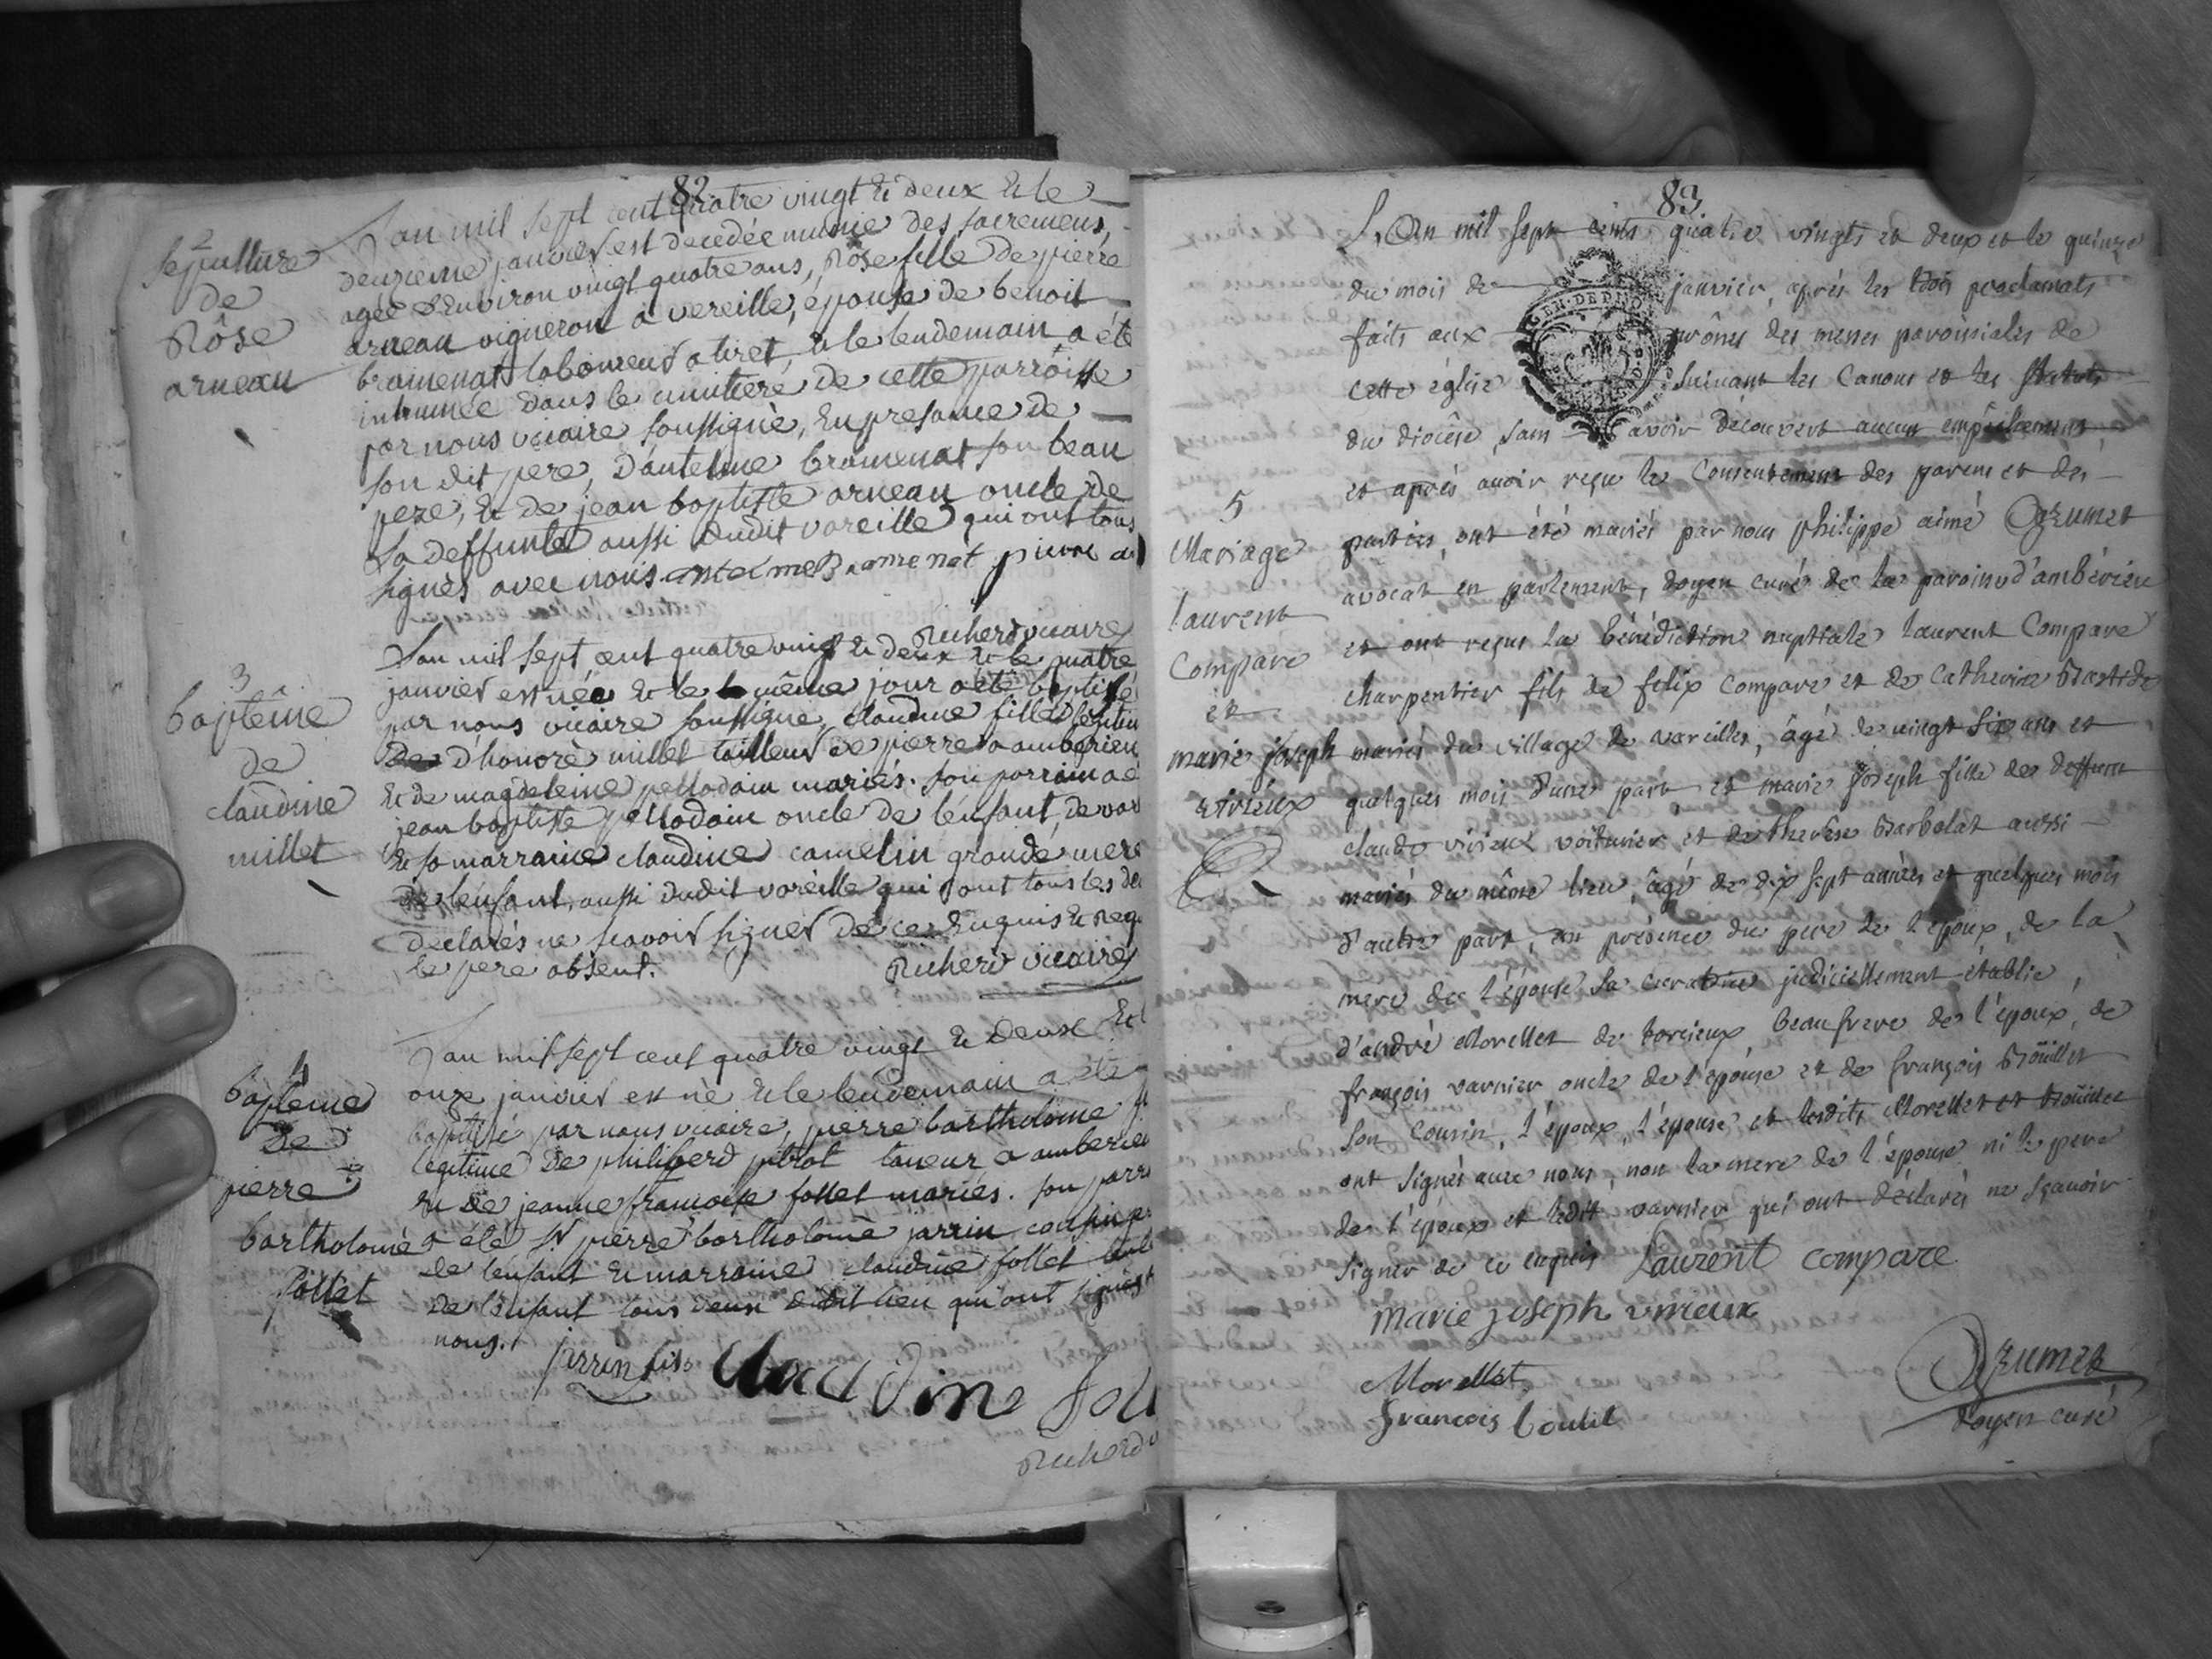 82
2
sepulture
de
Rôse
arneau
L'an mil sept cent quatre vingt & deux & le
deuzieme janvier est decedée munie des sacremens,
agée d'environ vingt quatre ans, Rôse fille de pierre
arneau vigneron a vereille, épouse de benoit
bramenat laboureur a tiret, & le lendemain a été
inhumée dans le cimitiere de cette parroisse
par nous vicaire soussigné, en presance de
son dit pere, d'antelme bramenat son beau
pere, & de jean baptiste arneau oncle de
la deffunte aussi dudit vareille qui ont tous
signés avec nous. antelme Bramenat pierre a
Richerd vicaire
3
baptême
de
claudine
millet
L'an mil sept cent quatre vingt & deux & le quatre
janvier est née & le même jour a été baptisée
par nous vicaire soussigné, claudine fille legitim
d'honoré millet tailleur de pierre a amberieu
& de magdeleine pelladain mariés. son parrain a é
jean baptiste pelladain oncle de l'enfant, de var
& sa marraine claudine camelin grande mere
de l'enfant, aussi dudit vareille qui ont tous les de
declarés ne scavoir signer de ce enquis & req
le pere absent.
Richerd vicaire
4
baptême
de
pierre
bartholomé
pittet
L'an mil sept cent quatre vingt & deux & l
onze janvier est né & le lendemain a été
baptisé par nous vicaire, pierre bartholome fi
legitime de philiberd taneur a amberieu
& de jeanne francoise follet mariés. son parr
a été sr pierre bartholomé jarrin cousin
de l'enfant & marraine claudine follet
de l'enfant tous deux dudit lieu qui ont signés
nous.
jarrin fils claudine fol
Richerd v
83
L'An mil sept cents quatre vingts et deux et le quinze
du mois de janvier, après les trois proclamats
faits aux prônes des messes paroissiales de
cette église suivant les Canons et les statuts
du diocèse, sans avoir découvert aucun empêchement
et après avoir reçu le Consentement des parens et des
parties, ont été mariés par nous philippe aimé Grumet
avocat en parlement, doyen curé de la paroisse d'ambérieu
et ont reçus la bénédiction nuptiale laurent Compare
charpentier fils de felix compare et de Catherine Bastide
mariés du village de vareilles, âgé de vingt six ans et
quelques mois d'une part et marie joseph fille de deffunt
claude virieux voiturier et de therèse Barbolat aussi
mariés du même lieu, âgé de dix sept années et quelques mois
d'autre part, en présence du pere de l'époux, de la
mere de l'épouse sa curatrice judiciellement établie,
d'andré Morellet de torcieux beaufrere de l'époux, de
françois varnier oncle de l'épouse et de françois Boüillet
son cousin, l'époux, l'épouse et lesdits Morellet et Boüillet
ont signés avec nous, non la mere de l'épouse ni le pere
de l'époux et ledit varnier qui ont déclarés ne sçavoir
signer de ce enquis Laurent compare
marie joseph virieux
Morellet
françois boulit
Grumet
doyen curé
5
Mariage
laurent
Compare
et
marie joseph
virieux